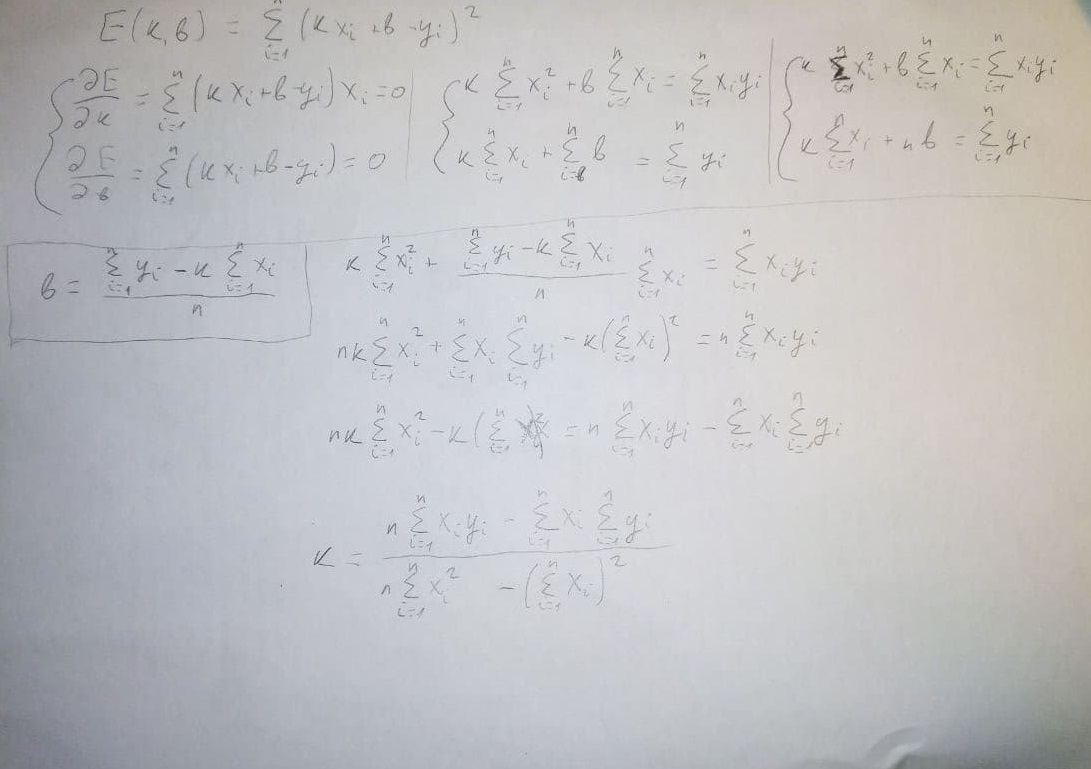 E(k,b) = Σ_{i=1}^{n} (k x_i + b - y_i)^2
{ ∂E/∂k = Σ_{i=1}^{n} (k x_i + b - y_i) x_i = 0
∂E/∂b = Σ_{i=1}^{n} (k x_i + b - y_i) = 0
{ k Σ_{i=1}^{n} x_i^2 + b Σ_{i=1}^{n} x_i = Σ_{i=1}^{n} x_i y_i
k Σ_{i=1}^{n} x_i + Σ_{i=b}^{n} b = Σ_{i=1}^{n} y_i
{ k Σ_{i=1}^{n} x_i^2 + b Σ_{i=1}^{n} x_i = Σ_{i=1}^{n} x_i y_i
k Σ_{i=1}^{n} x_i + n b = Σ_{i=1}^{n} y_i
b = (Σ_{i=1}^{n} y_i - k Σ_{i=1}^{n} x_i) / n
k Σ_{i=1}^{n} x_i^2 + (Σ_{i=1}^{n} y_i - k Σ_{i=1}^{n} x_i) / n Σ_{i=1}^{n} x_i = Σ_{i=1}^{n} x_i y_i
n k Σ_{i=1}^{n} x_i^2 + Σ_{i=1}^{n} x_i Σ_{i=1}^{n} y_i - k (Σ_{i=1}^{n} x_i)^2 = n Σ_{i=1}^{n} x_i y_i
n k Σ_{i=1}^{n} x_i^2 - k (Σ_{i=1}^{n} = n Σ_{i=1}^{n} x_i y_i - Σ_{i=1}^{n} x_i Σ_{i=1}^{n} y_i
k = (n Σ_{i=1}^{n} x_i y_i - Σ_{i=1}^{n} x_i Σ_{i=1}^{n} y_i) / (n Σ_{i=1}^{n} x_i^2 - (Σ_{i=1}^{n} x_i)^2)